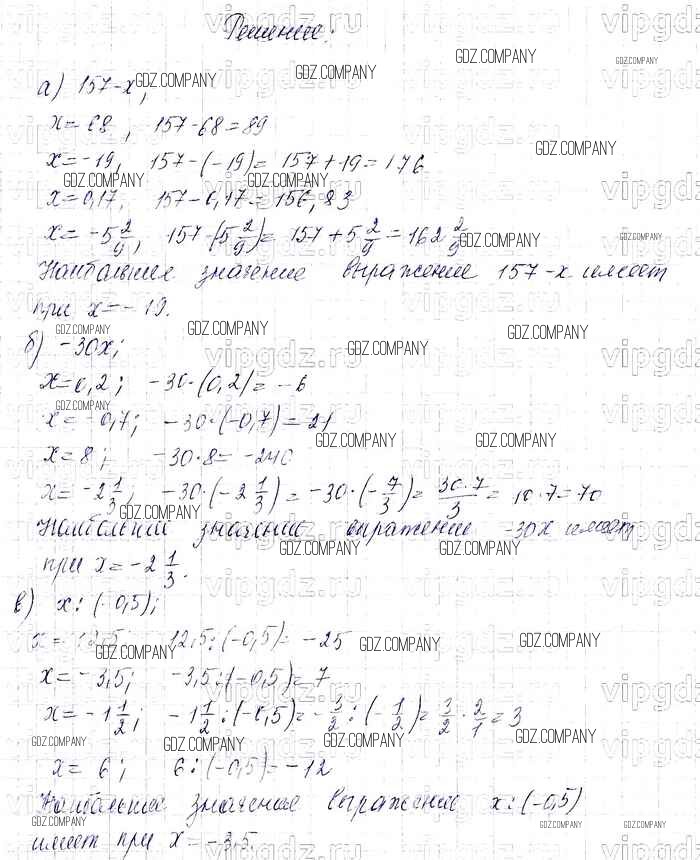 Решение:
а) 157-x;
x=68, 157-68=89
x=-19, 157-(-19)=157+19=176
x=0,17; 157-0,17=156,83
x=-5 2/9, 157-(5 2/9)=157+5 2/9=162 2/9
Наибольшее значение выражение 157-x имеет
при x=-19.
б) -30x;
x=0,2; -30·(0,2)=-6
x=-0,7; -30·(-0,7)=21
x=8; -30·8=-240
x=-2 1/3; -30·(-2 1/3)=-30·(-7/3)=30·7/3=10·7=70
Наибольшее значение выражение -30x имеет
при x=-2 1/3.
в) x:(-0,5);
x=12,5 12,5:(-0,5)=-25
x=-3,5; -3,5:(-0,5)=7
x=-1 1/2; -1 1/2:(-0,5)=-3/2:(-1/2)=3/2·2/1=3
x=6; 6:(-0,5)=-12
Наибольшее значение выражение x:(-0,5)
имеет при x=-3,5.
GDZ.COMPANY
vipgdz.ru